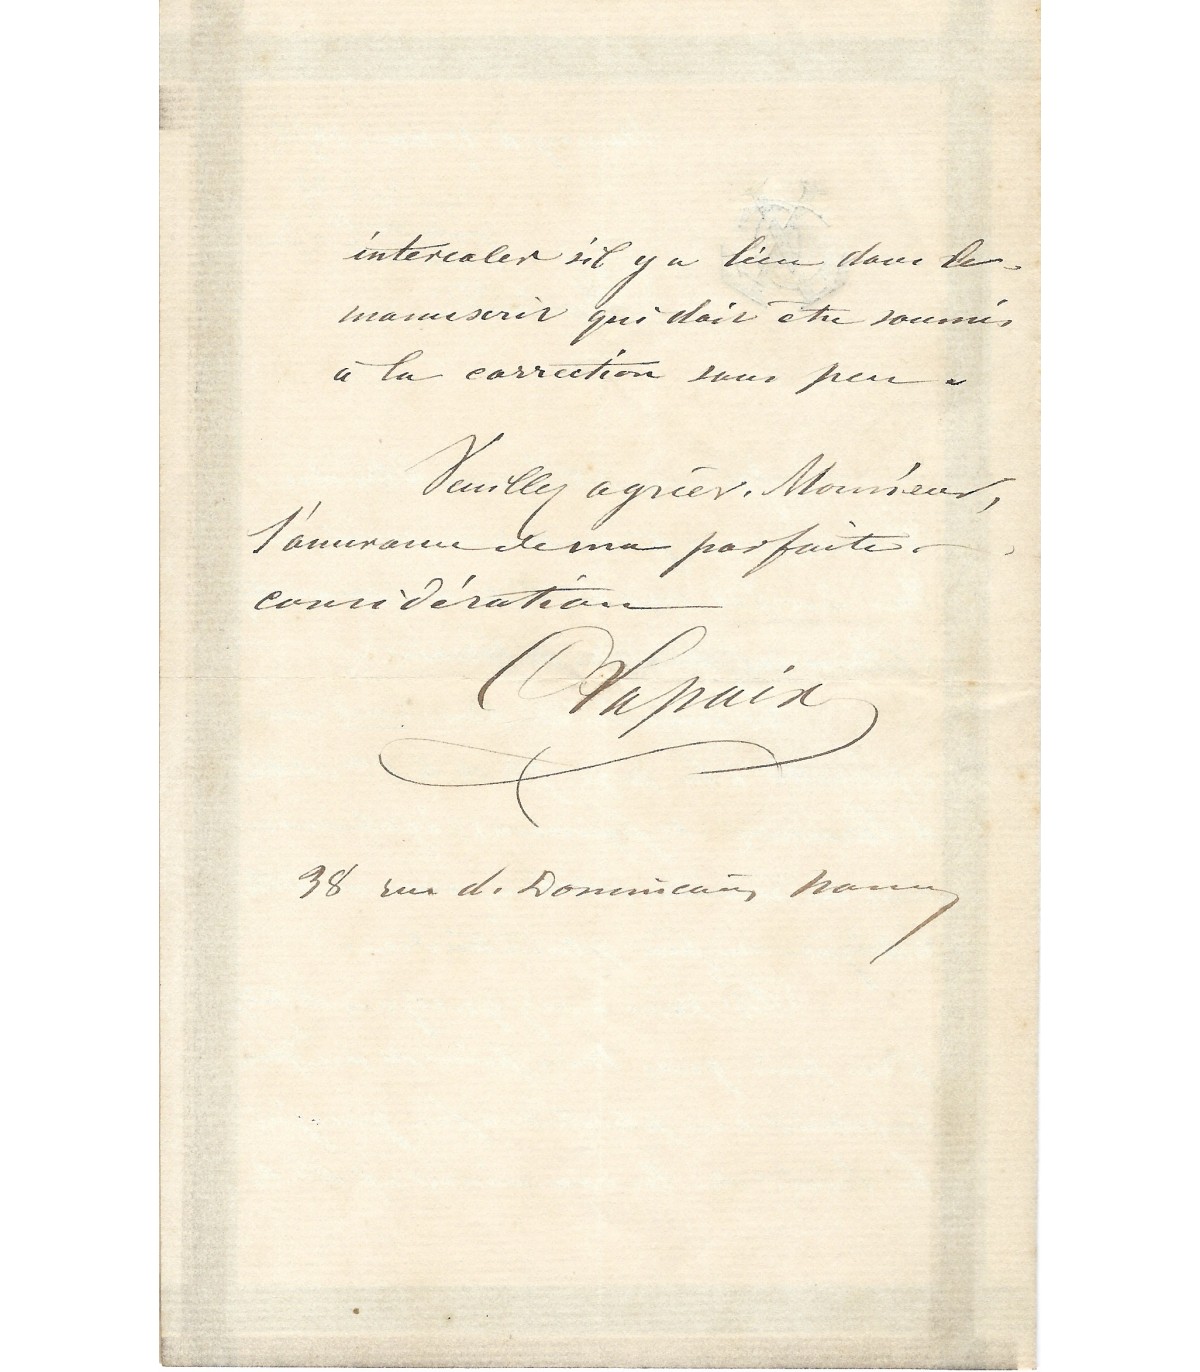 intercaler s'il y a lieu dans le
manuscrit qui doit être soumis
à la correction sous peu.
Veuillez agréer, Monsieur,
l'assurance de ma parfaite
considération
Lapaix
38 rue d. Dominicains Nancy